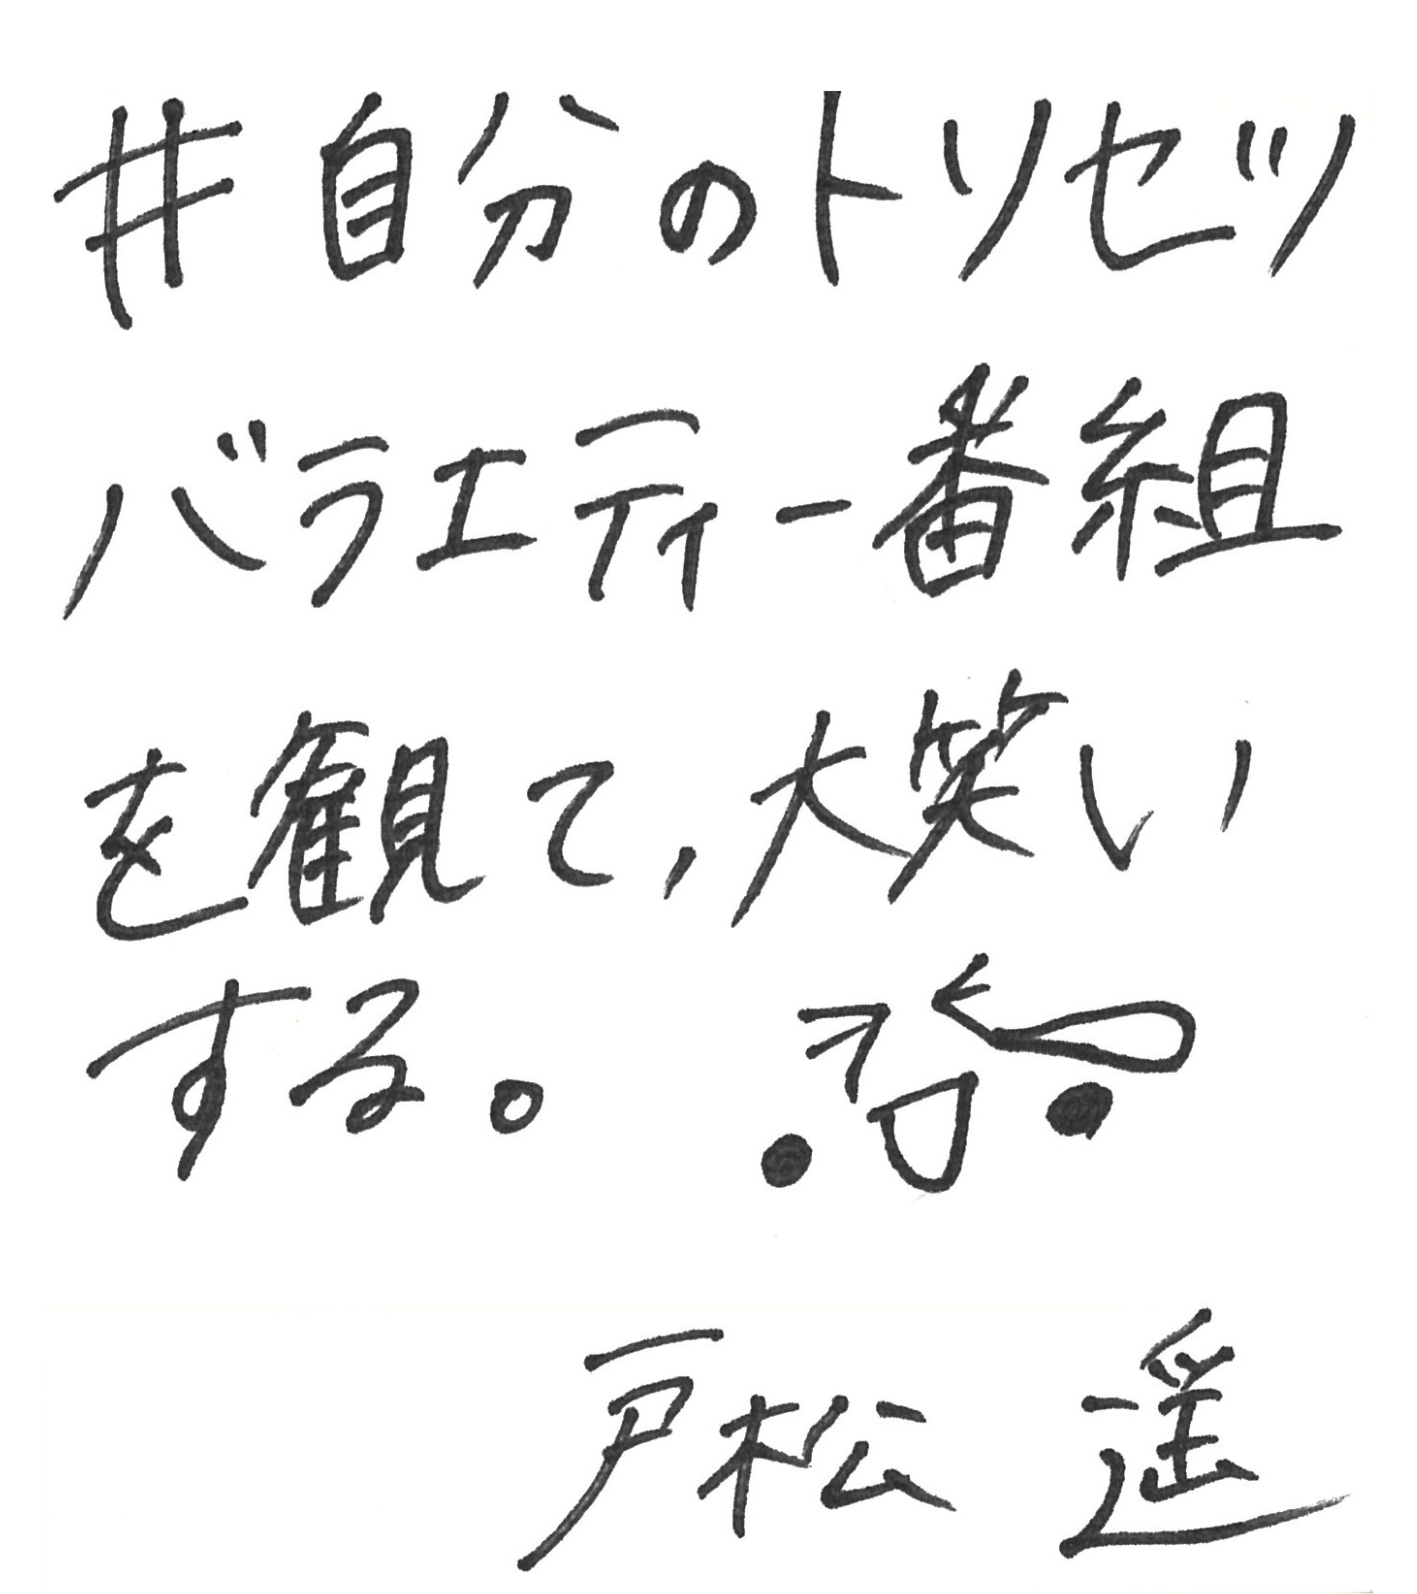 #自分のトリセツ
バラエティー番組
を観て,大笑い
する。
戸松 遥